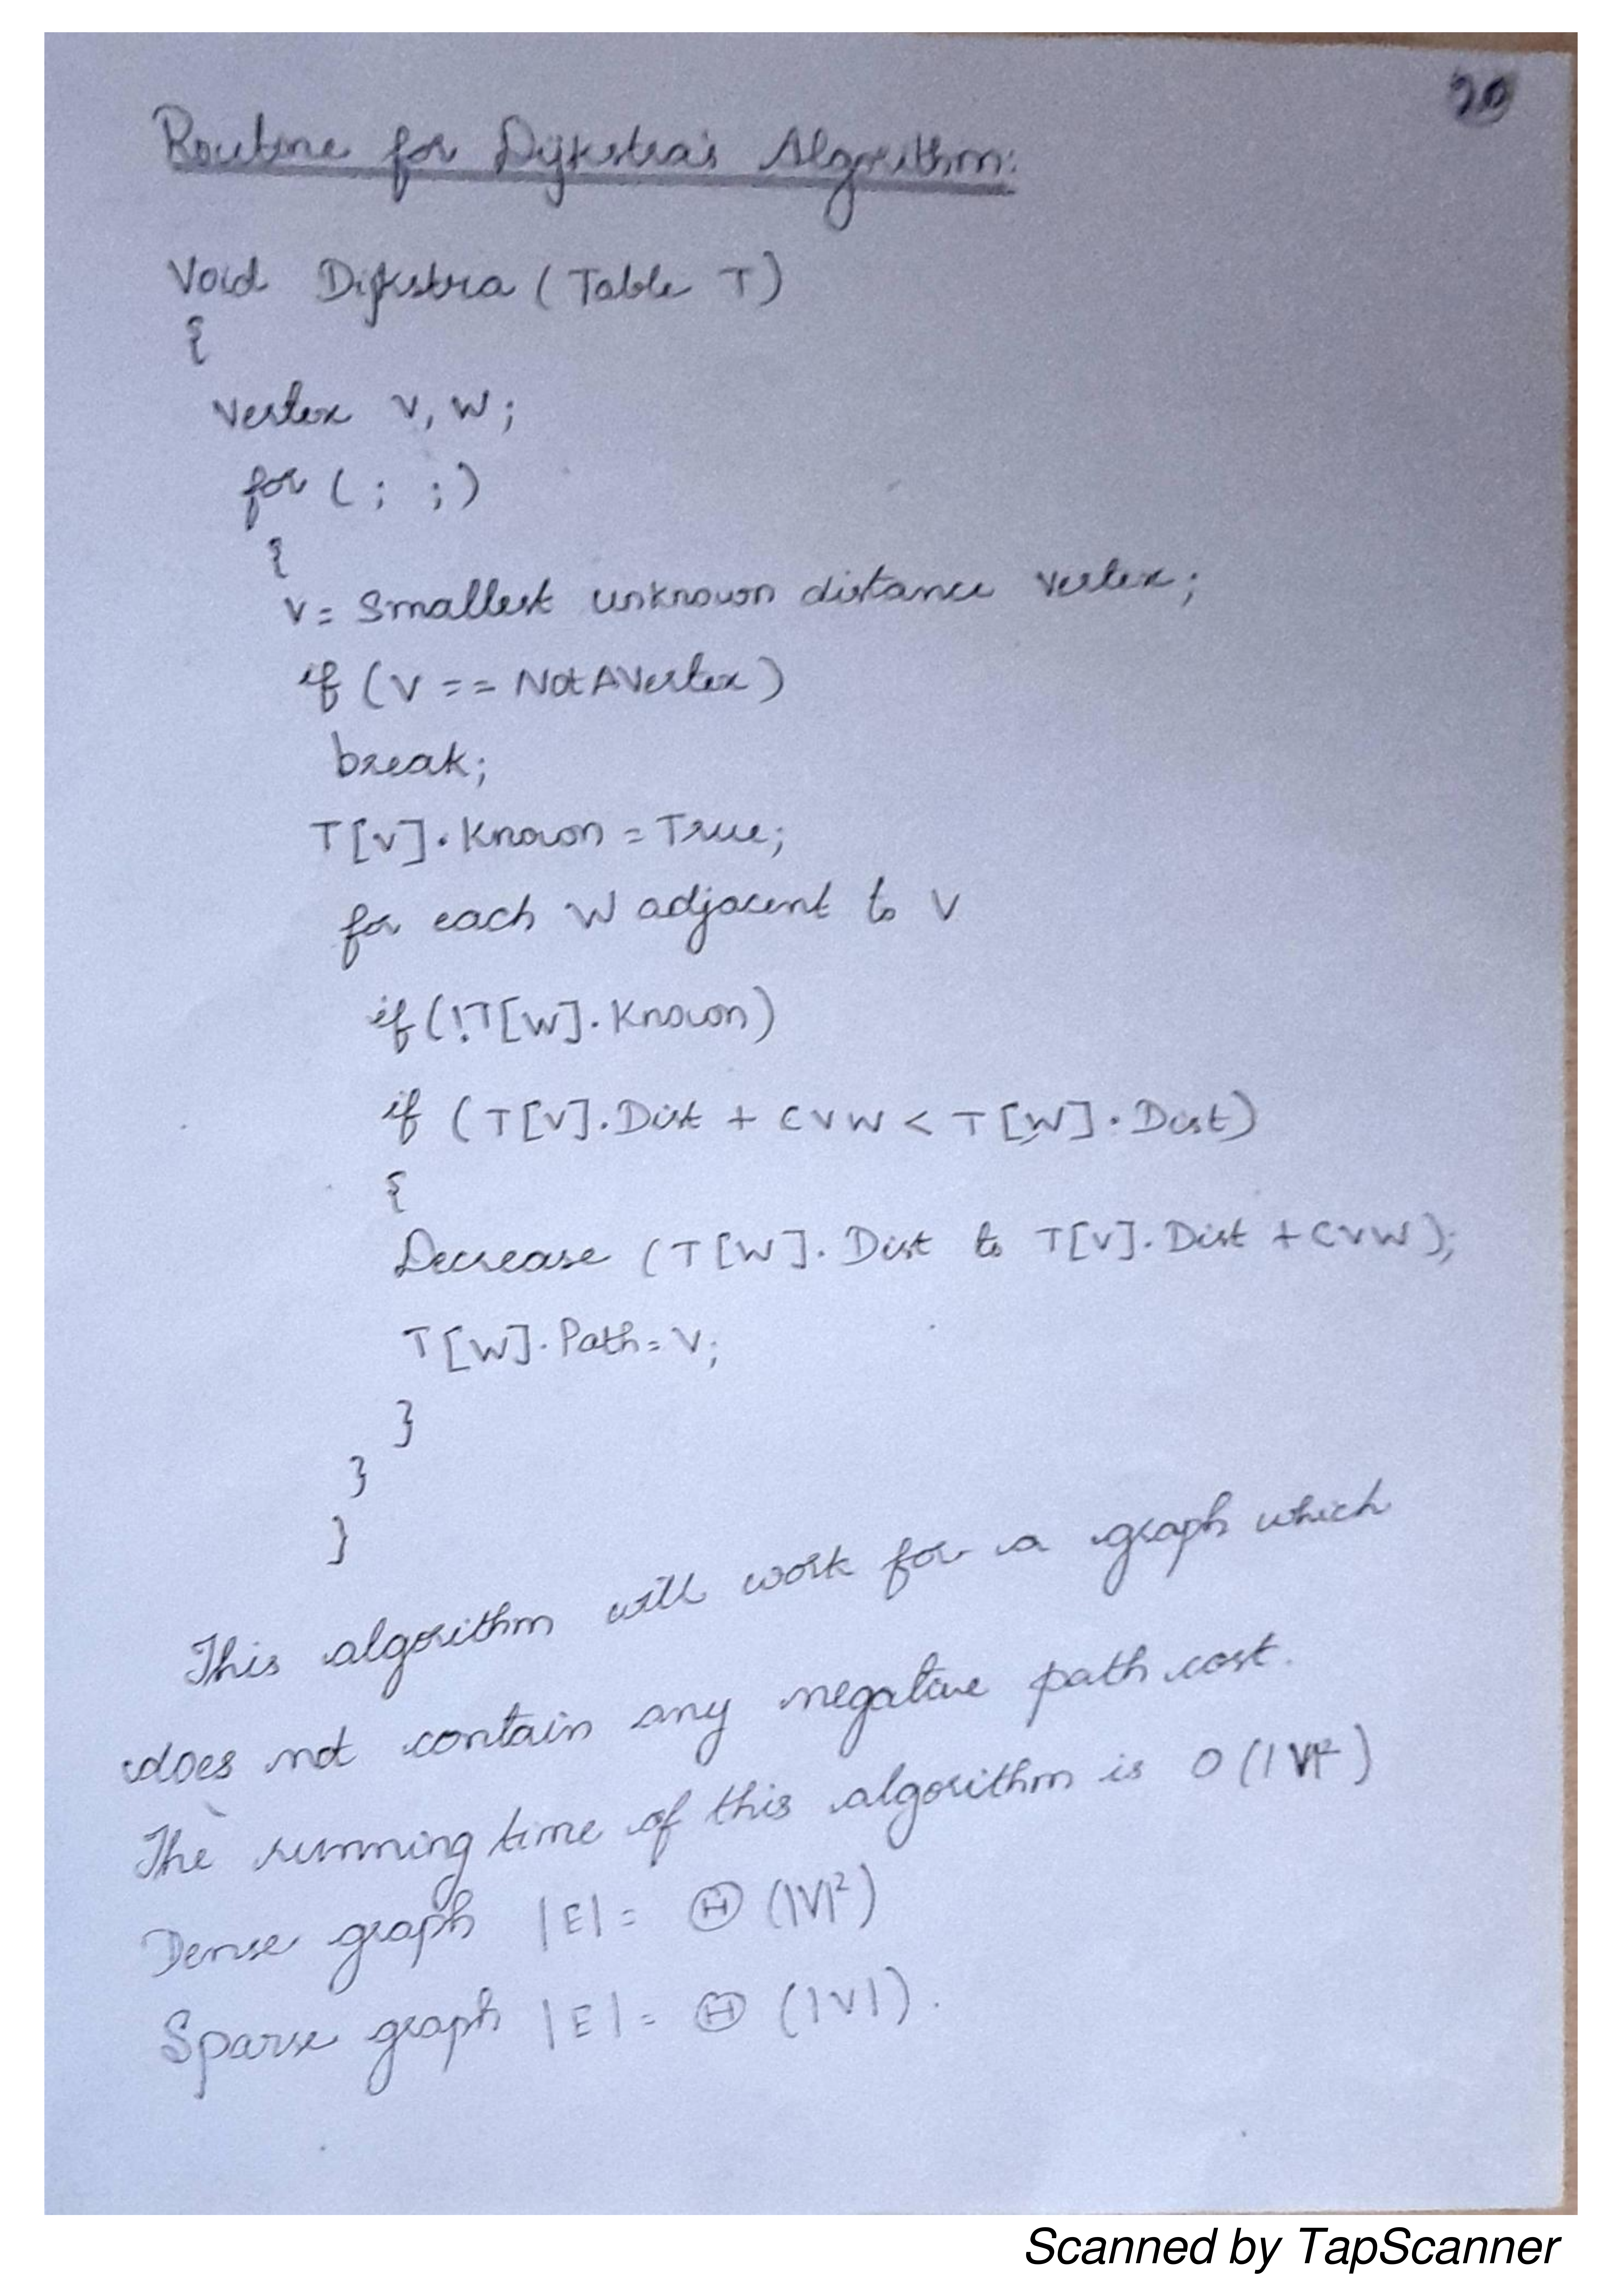 20
Routine for Dijkstra's Algorithm:
Void Dijkstra ( Table T )
{
Vertex V, W ;
for ( ; ; )
{
V = Smallest unknown distance vertex ;
if ( V == NotAVertex )
break ;
T[V] . Known = True ;
for each W adjacent to V
if ( !T[W] . Known )
if ( T[V] . Dist + CVW < T[W] . Dist )
{
Decrease ( T[W] . Dist to T[V] . Dist + CVW ) ;
T[W] . Path = V ;
}
}
}
This algorithm will work for a graph which
does not contain any negative path cost.
The running time of this algorithm is O(|V|²)
Dense graph |E| = Θ (|V|²)
Sparse graph |E| = Θ (|V|).
Scanned by TapScanner